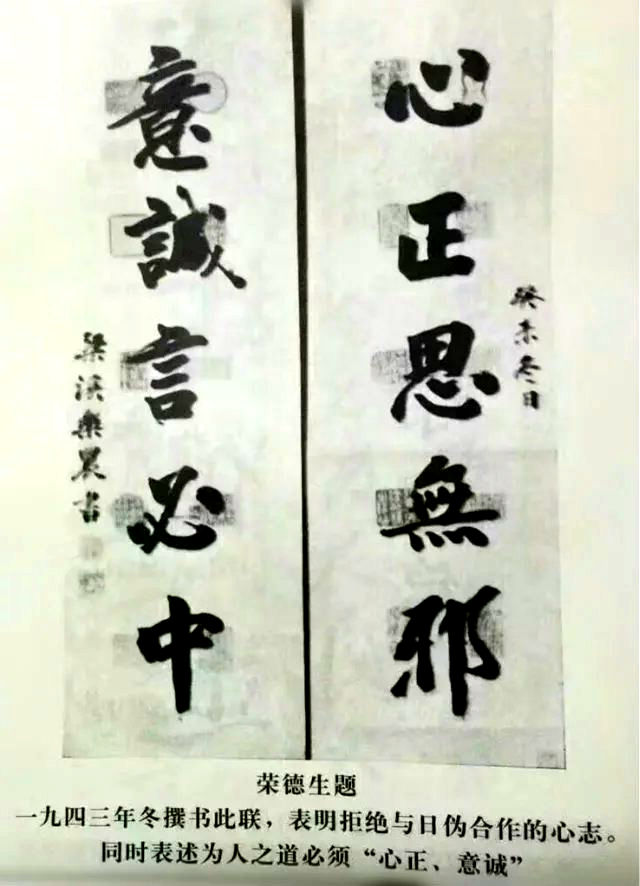 癸未冬日
心正思無邪
意誠言必中
梁溪樂農書
荣德生题
一九四三年冬撰书此联，表明拒绝与日伪合作的心志。
同时表述为人之道必须“心正、意诚”